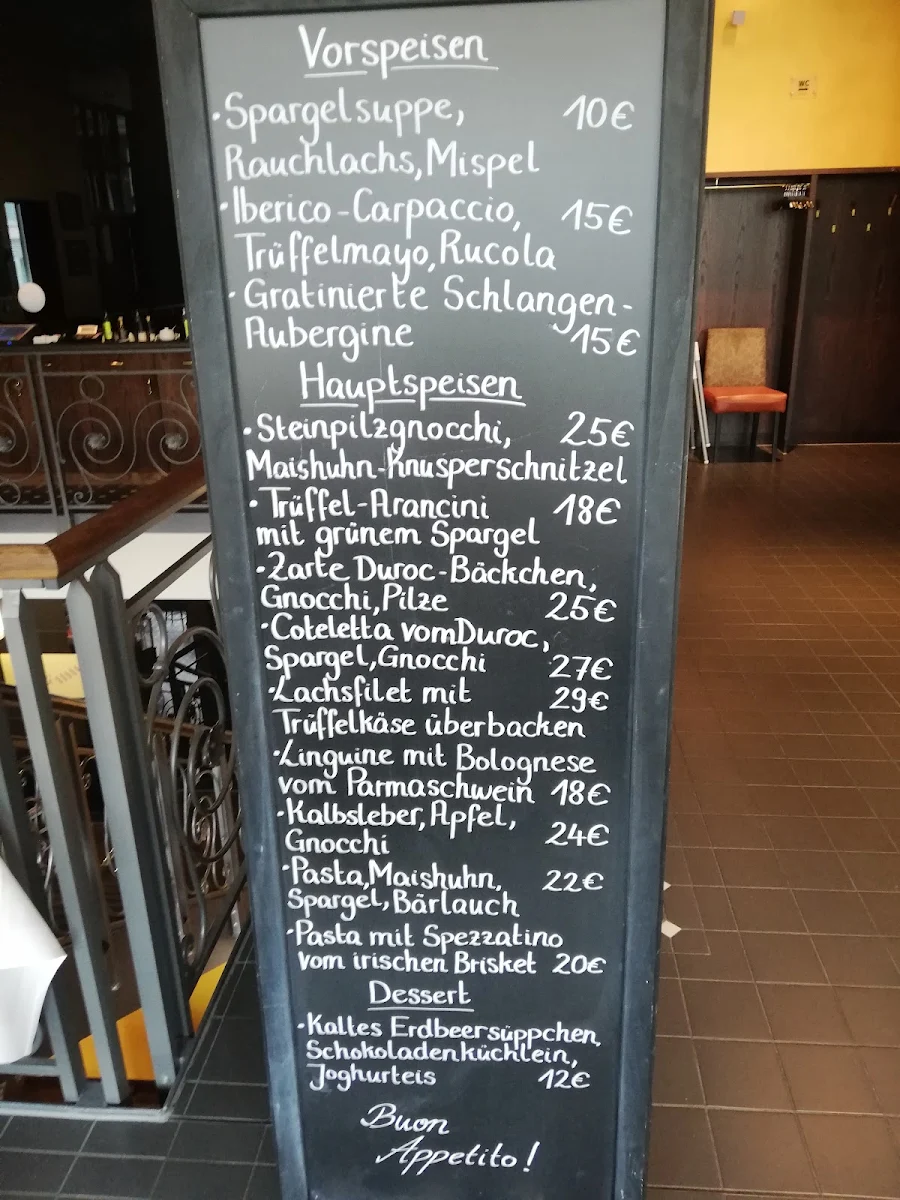 Vorspeisen
WC
· Spargelsuppe, 10€
Rauchlachs, Mispel
· Iberico-Carpaccio, 15€
Trüffelmayo, Rucola
· Gratinierte Schlangen-
Aubergine 15€
Hauptspeisen
· Steinpilzgnocchi, 25€
Maishuhn-Knusperschnitzel
· Trüffel-Arancini 18€
mit grünem Spargel
· Zarte Duroc-Bäckchen,
Gnocchi, Pilze 25€
· Coteletta vom Duroc,
Spargel, Gnocchi 27€
· Lachsfilet mit 29€
Trüffelkäse überbacken
· Linguine mit Bolognese
vom Parmaschwein 18€
· Kalbsleber, Apfel,
Gnocchi 24€
· Pasta, Maishuhn, 22€
Spargel, Bärlauch
· Pasta mit Spezzatino
vom irischen Brisket 20€
Dessert
· Kaltes Erdbeersüppchen,
Schokoladenküchlein,
Joghurteis 12€
Buon
Appetito!